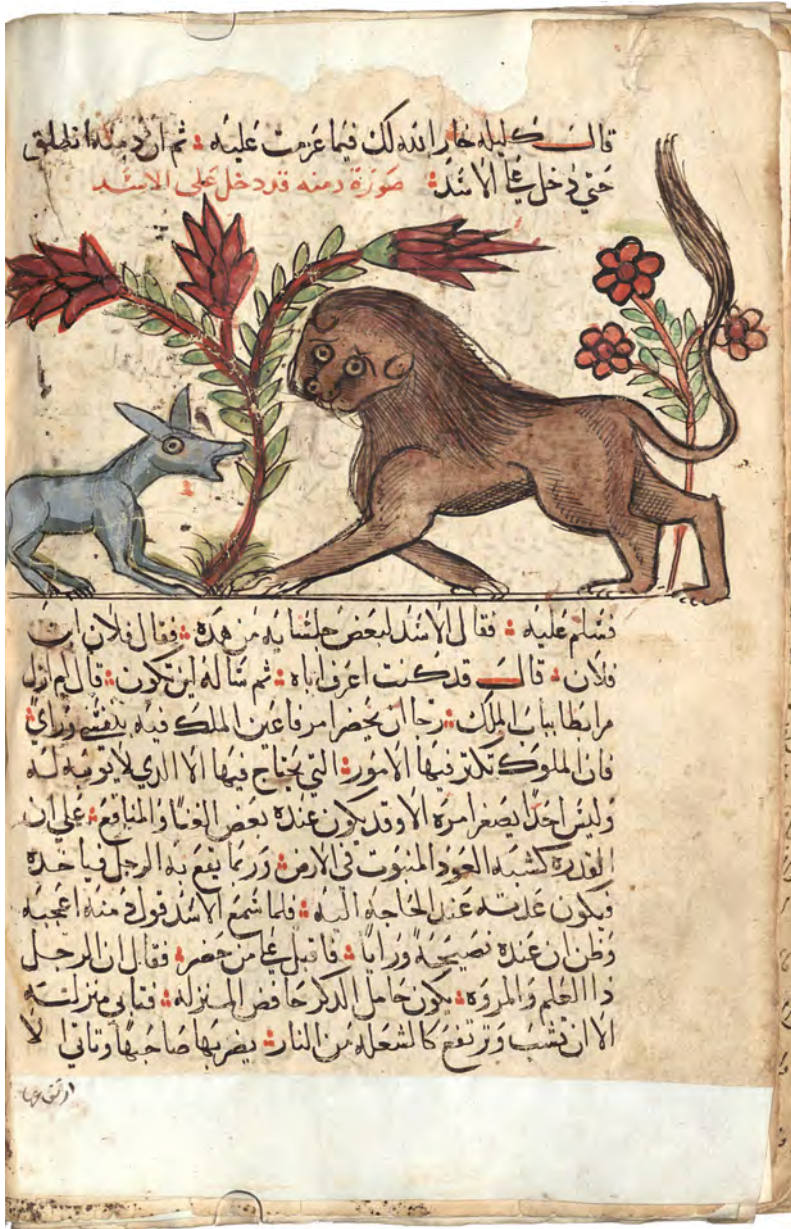 قالـــ كليله خار الله لك فيما عزمت عليه ؞ ثم ان دمنه انطلق
حتي دخل علي الاسد ؞ صورة دمنه قد دخل على الاسد
فسلم عليه ؞ فقال الاسد لبعض جلسايه من هده ؞ فقال فلان ابن
فلان ؞ قالـــ قد كنت اعرف اباه ؞ ثم ساله اين تكون ؞ قال لم ازل
مرابطا بباب الملك ؞ رجا ان يحضر امر فاعين الملك فيه بنفسي ورايي
فان الملوك تكتر فيها الامور ؞ التي يحتاج فيها الا الدي لا يوبه له
وليس احدا يصغر امره الا وقد يكون عنده بعض الغنا والمنافع ؞ علي ان
العود المنبوت في الارض ؞ وربما يقع به الرجل فياخده
فيكون عدته عند الحاجه اليه ؞ فلما سمع الاسد قول دمنه اعجبه
وظن ان عنده نصيحه ورايا ؞ فاقبل علي من حضر ؞ فقال ان الرجل
دا العلم والمروه ؞ يكون خامل الدكر خافض المنزله ؞ فتابي منزلته
الا ان تشب وترتفع كالشعله من النار ؞ يضربها صاحبها وتابي الا